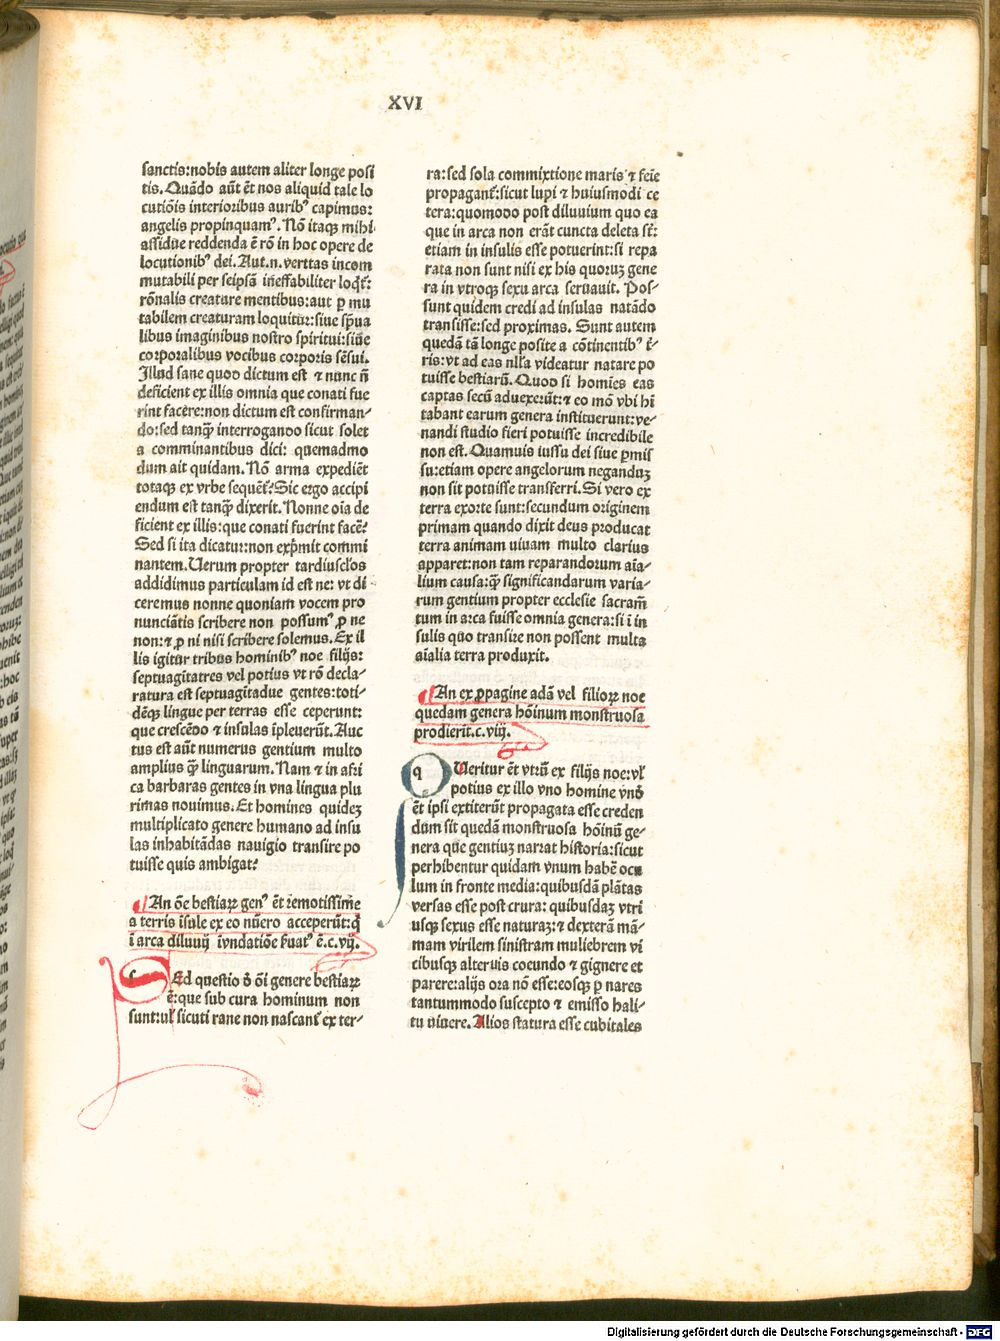 XVI
sanctis:nobis autem aliter longe posi
tis. Quãdo aũt ẽt nos aliquid tale lo
cutiõis interioribus aurib⁹ capimus:
angelis propinquam⁹. Nõ itaqꝫ mihi
assidue reddenda ẽ rõ in hoc opere de
locutionib⁹ dei. Aut.n.veritas incom
mutabili per seipsã ineffabiliter loq̃t:
rõnalis creature mentibus:aut ꝑ mu
tabilem creaturam loquitur:siue sp̃ua
libus imaginibus nostro spiritui:siue
corporalibus vocibus corporis sẽsui.
Illud sane quod dictum est ⁊ nunc ñ
deficient ex illis omnia que conati fue
rint facere:non dictum est confirman-
do:sed tanq̃ interrogando sicut solet
a comminantibus dici: quemadmo
dum ait quidam. Nõ arma expediẽt
totaqꝫ ex vrbe sequẽt? Sic ergo accipi
endum est tanq̃ dixerit. Nonne oĩa de
ficient ex illis:que conati fuerint facẽ?
Sed si ita dicatur:non exp̃mit commi
nantem. Verum propter tardiuscl̃os
addidimus particulam id est ne: vt di
ceremus nonne quoniam vocem pro
nunciãtis scribere non possum⁹ ꝓ ne
non:⁊ ꝓ ni nisi scribere solemus. Ex il
lis igitur tribus hominib⁹ noe filijs:
septuagĩtatres vel potius vt rõ decla-
ratura est septuagĩtadue gentes:toti-
dẽqꝫ lingue per terras esse ceperunt:
que crescẽdo ⁊ insulas ĩpleuerũt. Auc
tus est aũt numerus gentium multo
amplius q̃ linguarum. Nam ⁊ in afri
ca barbaras gentes in vna lingua plu
rimas nouimus. Et homines quidez
multiplicato genere humano ad insu
las inhabitãdas nauigio transire po
tuisse quis ambigat?
An õe bestiaꝝ gen⁹ ẽt remotissime
a terris ĩsule ex eo nũero acceperũt:q̃
ĩ arca diluuij ĩvndatiõe ẽuat⁹ ẽ.c.vij.
SEd questio ð õi genere bestiaꝝ
ẽ:que sub cura hominum non
sunt:vl̃ sicuti rane non nascant̃ ex ter-
ra:sed sola commixtione maris ⁊ feĩe
propagant̃:sicut lupi ⁊ huiusmodi ce
tera:quomodo post diluuium quo ea
que in arca non erãt cuncta deleta st̃:
etiam in insulis esse potuerint:si repa
rata non sunt nisi ex his quoruz gene
ra in vtroqꝫ sexu arca seruauit. Pos-
sunt quidem credi ad insulas natãdo
transisse:sed proximas. Sunt autem
quedã tã longe posite a cõtinentib⁹ t̃-
ris:vt ad eas nl̃la videatur natare po
tuisse bestiarũ. Quod si homĩes eas
captas secũ aduexerũt:⁊ eo mõ vbi hĩ
tabant earum genera instituerunt:ve-
nandi studio fieri potuisse incredibile
non est. Quamuis iussu dei siue ꝑmis
su:etiam opere angelorum neganduz
non sit potuisse transferri. Si vero ex
terra exorte sunt:secundum originem
primam quando dixit deus producat
terra animam viuam multo clarius
apparet:non tam reparandorum aĩa-
lium causa:q̃ significandarum varia-
rum gentium propter ecclesie sacram̃
tum in arca fuisse omnia genera:si ĩ in
sulis quo transire non possent multa
aĩalia terra produxit.
An ex ꝓpagine adã vel filioꝝ noe
quedam genera hõinum monstruosa
prodierĩt.c.viij.
q QVeritur ẽt vtrũ ex filijs noe:vl̃
potius ex illo vno homine vñð
ẽt ipsi extiterũt propagata esse creden
dum sit quedã monstruosa hõinũ ge-
nera que gentiuz narrat historia:sicut
perhibentur quidam vnum habẽ ocu
lum in fronte media:quibusdã plãtas
versas esse post crura: quibusdaz vtri
usqꝫ sexus esse naturaz:⁊ dexterã mã-
mam virilem sinistram muliebrem vi
cibusqꝫ alteruis coeundo ⁊ gignere et
parere:alijs ora nõ esse:eosqꝫ ꝑ nares
tantummodo suscepto ⁊ emisso hali-
tu viuere. Alios statura esse cubitales
Digitalisierung gefördert durch die Deutsche Forschungsgemeinschaft - DFG